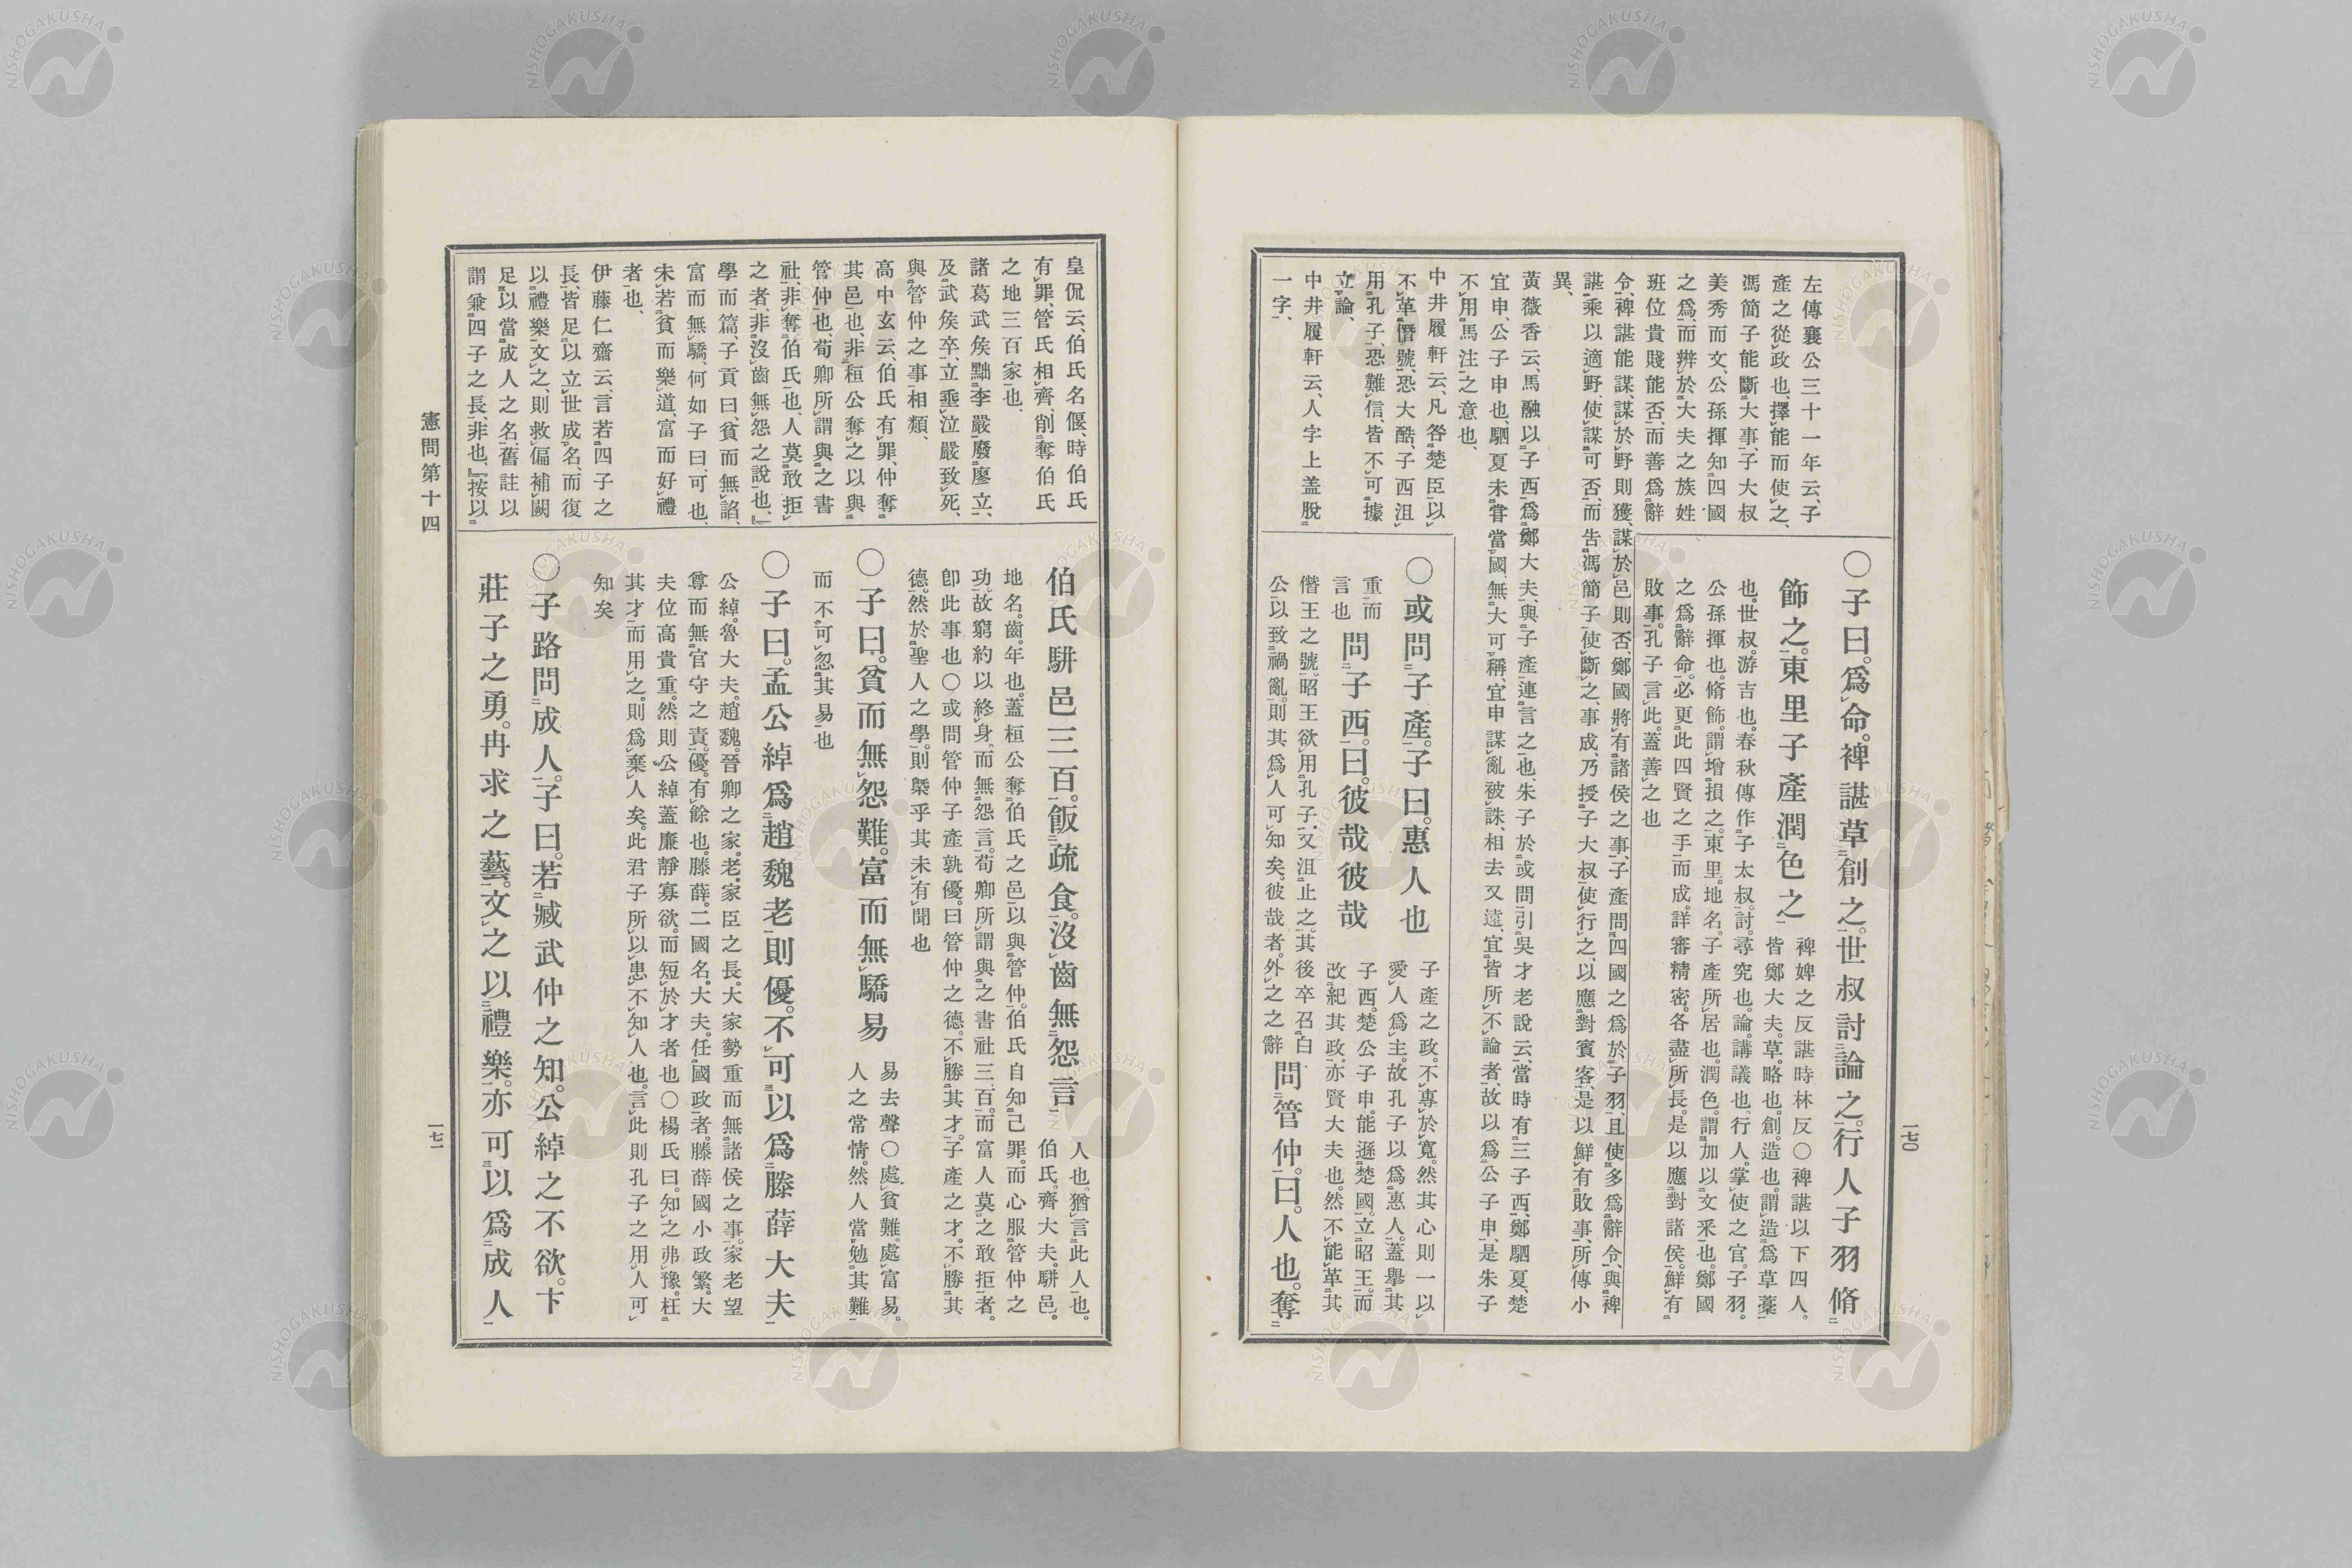 左傳襄公三十一年云、子
產之從政也、擇能而使之、
馮簡子能斷大事、子大叔
美秀而文、公孫揮知四國
之爲、而辨於大夫之族姓
班位貴賤能否、而善爲辭
令、裨諶能謀、謀於野則獲、謀於邑則否、鄭國將有諸侯之事、子產問四國之爲於子羽、且使多爲辭令、與裨
諶乘以適野、使謀可否、而告馮簡子、使斷之、事成、乃授子大叔使行之、以應對賓客、是以鮮有敗事、所傳小
異、
黃薇香云、馬融以子西爲鄭大夫、與子產連言之也、朱子於或問引吳才老說云、當時有三子西、鄭駟夏、楚
宜申、公子申也、駟夏未嘗當國、無大可稱、宜申謀亂被誅、相去又遠、宜皆所不論者、故以爲公子申、是朱子
不用馬注之意也、
中井履軒云、凡咎楚臣、以
不革僭號、恐大酷、子西沮
用孔子、恐難信、皆不可據
立論、
中井履軒云、人字上盖脫
一字、
〇子曰。爲命。裨諶草創之。世叔討論之。行人子羽脩
飾之。東里子產潤色之
裨婢之反諶時林反〇裨諶以下四人。
皆鄭大夫。草。略也。創。造也。謂造爲草藁
也。世叔。游吉也。春秋傳作子太叔。討。尋究也。論講議也。行人。掌使之官。子羽。
公孫揮也。脩飾。謂增損之。東里。地名。子產所居也。潤色。謂加以文釆也。鄭國
之爲辭命。必更此四賢之手而成。詳審精密。各盡所長。是以應對諸侯。鮮有
敗事。孔子言此。蓋善之也
〇或問子產。子曰。惠人也
子產之政。不專於寬。然其心則一以
愛人爲主。故孔子以爲惠人。蓋舉其
重而
言也
問子西。曰。彼哉彼哉
子西。楚公子申。能遜楚國。立昭王。而
改紀其政。亦賢大夫也。然不能革其
僭王之號。昭王欲用孔子。又沮止之。其後卒召白
公以致禍亂。則其爲人可知矣。彼哉者。外之之辭
問管仲。曰。人也。奪
一七〇
皇侃云、伯氏名偃、時伯氏
有罪、管氏相齊、削奪伯氏
之地三百家也、
諸葛武矦黜李嚴、廢廖立、
及武矦卒、立垂泣、嚴致死、
與管仲之事相類、
高中玄云、伯氏有罪、仲奪
其邑也、非桓公奪之以與
管仲也、荀卿所謂與之書
社、非奪伯氏也、人莫敢拒
之者、非沒齒無怨之說也、
學而篇、子貢曰、貧而無諂、
富而無驕、何如、子曰、可也、
未若貧而樂道、富而好禮
者也、
伊藤仁齋云、言若四子之
長、皆足以立世成名、而復
以禮樂文之、則救偏補闕
足以當成人之名、舊註以
謂兼四子之長、非也、按以
伯氏駢邑三百。飯疏食。沒齒無怨言
人也。猶言此人也。
伯氏。齊大夫。駢邑。
地名。齒。年也。蓋桓公奪伯氏之邑以與管仲。伯氏自知己罪。而心服管仲之
功。故窮約以終身。而無怨言。荀卿所謂與之書社三百。而富人莫之敢拒者。
卽此事也〇或問管仲子產孰優。曰管仲之德。不勝其才。子產之才。不勝其
德。然於聖人之學。則槩乎其未有聞也
〇子曰。貧而無怨難。富而無驕易
易去聲〇處貧難。處富易。
人之常情。然人當勉其難
而不可忽其易也
〇子曰。孟公綽爲趙魏老則優。不可以爲滕薛大夫
公綽。魯大夫。趙魏。晉卿之家。老。家臣之長。大家勢重而無諸侯之事。家老望
尊而無官守之責。優。有餘也。滕薛。二國名。大夫。任國政者。滕薛國小政繁。大
夫位高貴重。然則公綽蓋廉靜寡欲。而短於才者也〇楊氏曰。知之弗豫。枉
其才而用之。則爲棄人矣。此君子所以患不知人也。言此則孔子之用人可
知矣
〇子路問成人。子曰。若臧武仲之知。公綽之不欲。卞
莊子之勇。冉求之藝。文之以禮樂。亦可以爲成人
憲問第十四
一七一